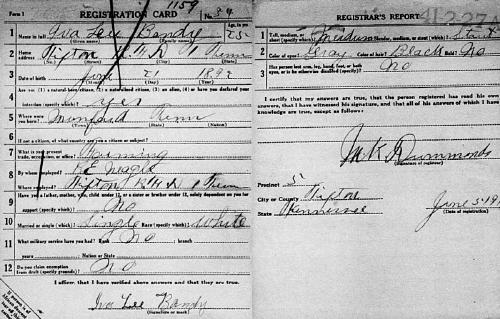 Form 1
1159
REGISTRATION CARD
No. 84
1 Name in full Iva Lee Bandy Age, in yrs. 25
(Given name) (Family name)
2 Home address Tipton R.F.D. 1 Tenn
(No.) (Street) (City) (State)
3 Date of birth 21 1892
(Month) (Day) (Year)
4 Are you (1) a natural-born citizen, (2) a naturalized citizen, (3) an alien, (4) or have you declared your
intention (specify which)? yes
5 Where were you born? Munford Tenn
(Town) (State) (Nation)
6 If not a citizen, of what country are you a citizen or subject?
7 What is your present trade, occupation, or office? Farming
8 By whom employed?
Where employed? Tipton R.F.D. 1 Tenn
9 Have you a father, mother, wife, child under 12, or a sister or brother under 12, solely dependent on you for
support (specify which)? No
10 Married or single (which)? Single Race (specify which)? White
11 What military service have you had? Rank No branch
years Nation or State
12 Do you claim exemption from draft (specify grounds)? No
I affirm that I have verified above answers and that they are true.
Iva Lee Bandy
(Signature or mark)
REGISTRAR'S REPORT
1 Tall, medium, or short (specify which)? Medium Slender, medium, or stout (which)? Stout
2 Color of eyes? Gray Color of hair? Black Bald? No
3 Has person lost arm, leg, hand, foot, or both
eyes, or is he otherwise disabled (specify)? No
I certify that my answers are true, that the person registered has read his own
answers, that I have witnessed his signature, and that all of his answers of which I have
knowledge are true, except as follows:
Drummonds
(Signature of registrar)
Precinct 5
City or County Tipton
State Tennessee
June 5 191
(Date of registration)